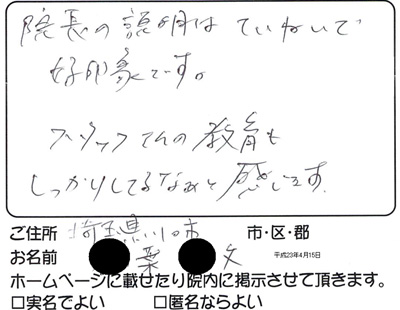 院長の説明は ていねいで
好印象です。
スタッフさんの教育も
しっかりしてるなあと感じます
ご住所 埼玉県川口市 市・区・郡
お名前 葉 文 平成23年4月15日
ホームページに載せたり院内に掲示させて頂きます。
□実名でよい □匿名ならよい